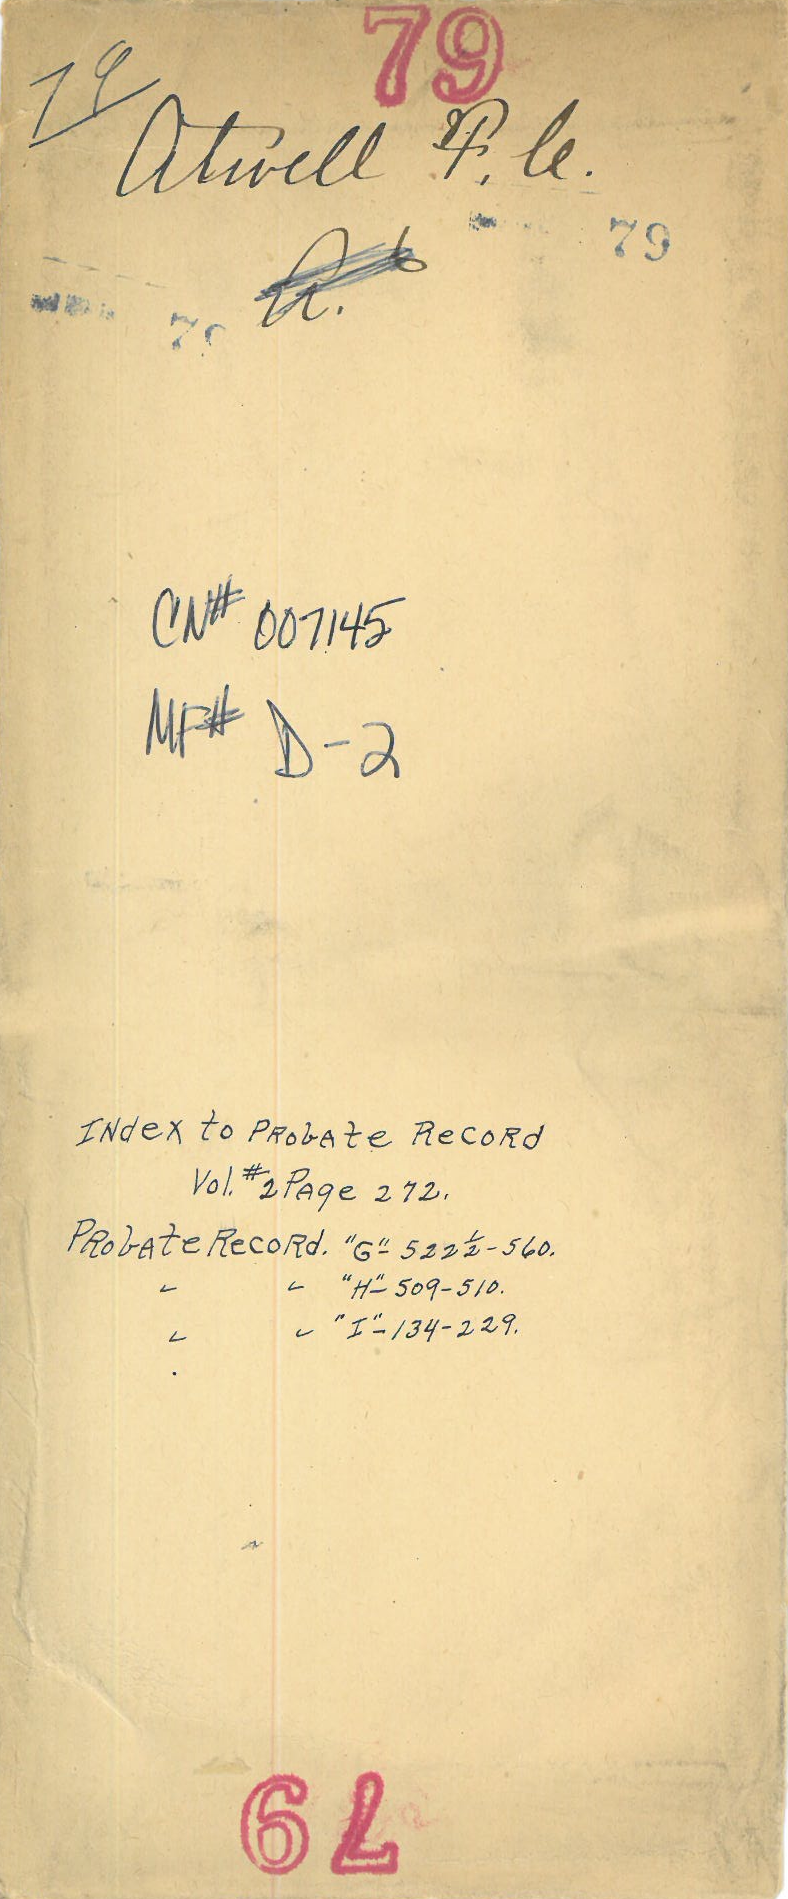 79
79
Atwell F. C.
79
79
A.
CN# 007145
MF# D-2
Index to Probate Record
Vol. #2 Page 272.
Probate Record. "G"- 522 1/2 - 560.
" " "H"- 509-510.
" " "I"- 134-229.
79